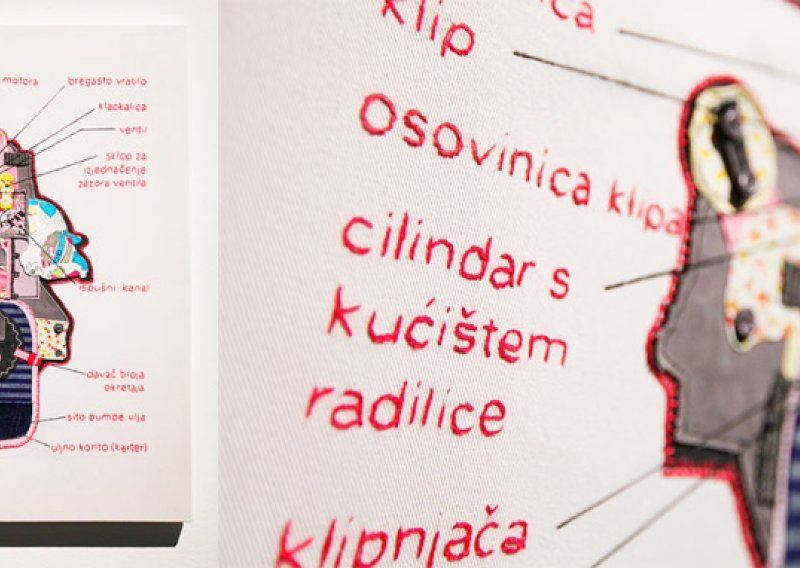 motora
bregasto vratilo
klackalica
ventil
sklop za
izjednačenje
zazora ventila
ispušni kanal
davač broja
okretaja
sito pumpe ulja
uljno korito (karter)
klip
osovinica klipa
cilindar s
kućištem
radilice
klipnjača